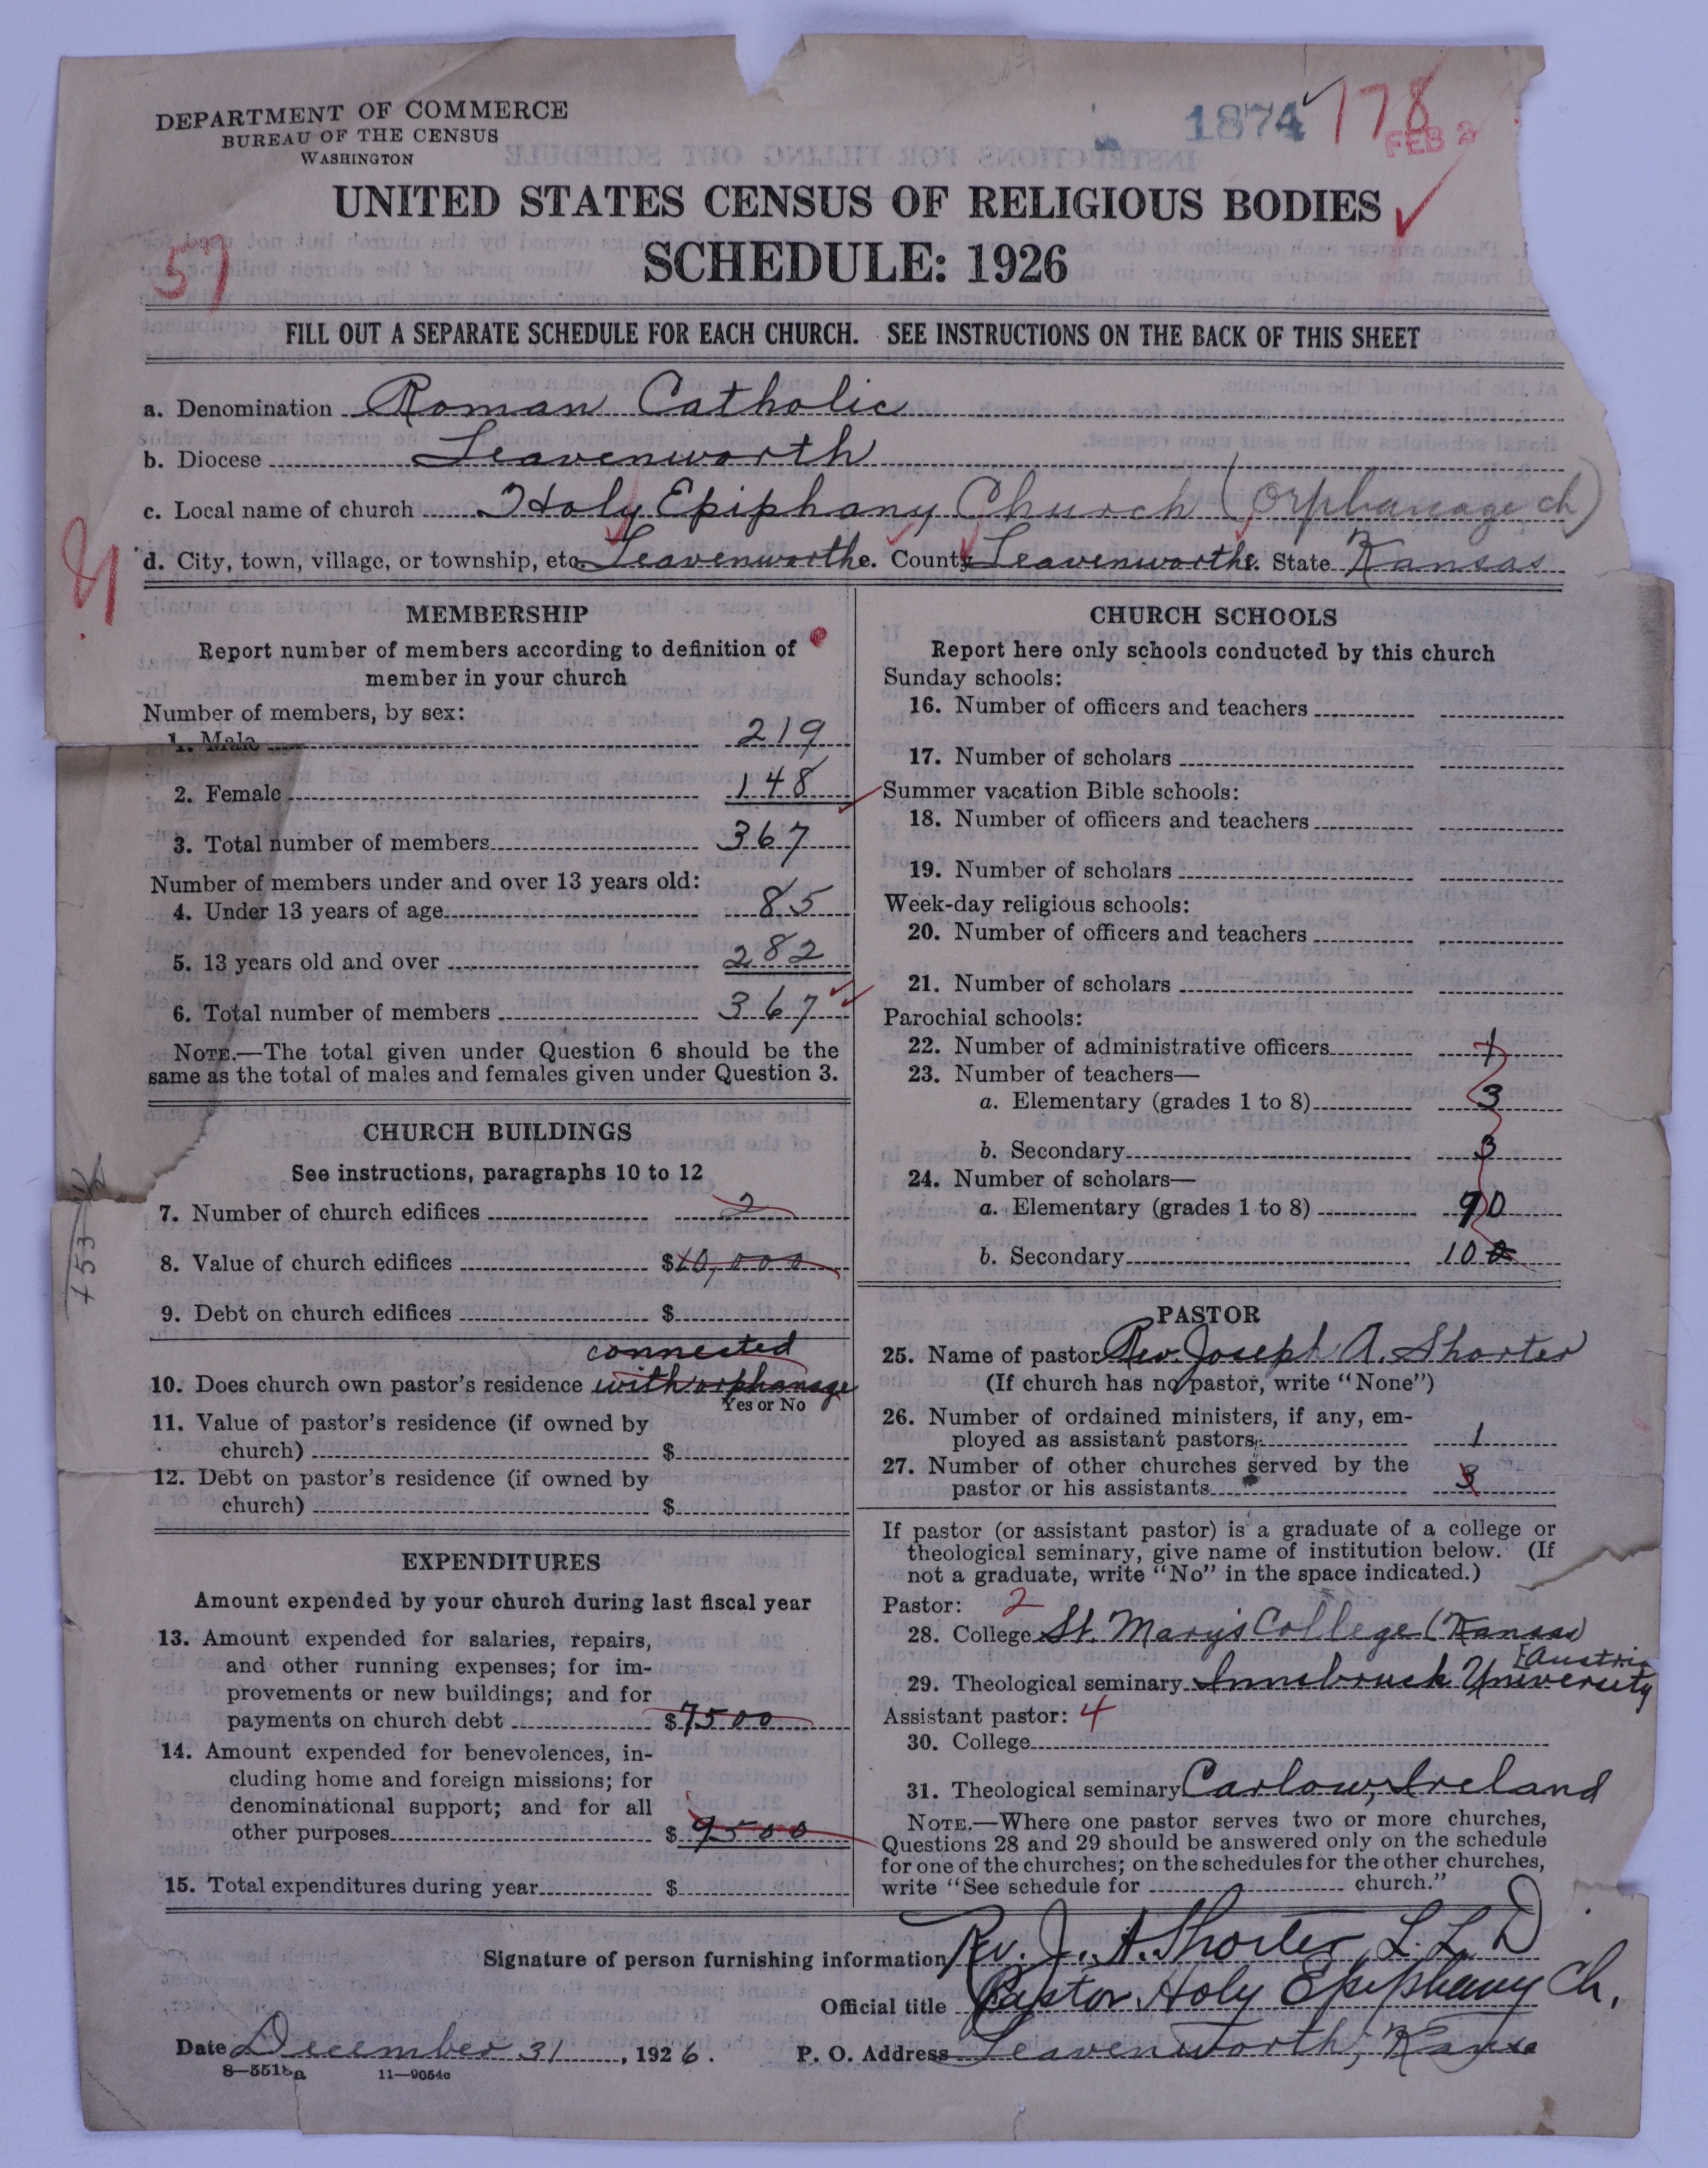 DEPARTMENT OF COMMERCE
BUREAU OF THE CENSUS
WASHINGTON
1874
778
FEB 2
UNITED STATES CENSUS OF RELIGIOUS BODIES
SCHEDULE: 1926
57
FILL OUT A SEPARATE SCHEDULE FOR EACH CHURCH. SEE INSTRUCTIONS ON THE BACK OF THIS SHEET
a. Denomination Roman Catholic
b. Diocese Leavenworth
c. Local name of church Holy Epiphany Church (Orphanage ch)
d. City, town, village, or township, etc. Leavenworth County Leavenworth State Kansas
MEMBERSHIP
Report number of members according to definition of
member in your church
Number of members, by sex:
1. Male 219
2. Female 148
3. Total number of members 367
Number of members under and over 13 years old:
4. Under 13 years of age 85
5. 13 years old and over 282
6. Total number of members 367
NOTE.—The total given under Question 6 should be the
same as the total of males and females given under Question 3.
CHURCH BUILDINGS
See instructions, paragraphs 10 to 12
7. Number of church edifices 2
8. Value of church edifices $10,000
9. Debt on church edifices $
connected
10. Does church own pastor's residence with orphanage
Yes or No
11. Value of pastor's residence (if owned by
church) $
12. Debt on pastor's residence (if owned by
church) $
EXPENDITURES
Amount expended by your church during last fiscal year
13. Amount expended for salaries, repairs,
and other running expenses; for im-
provements or new buildings; and for
payments on church debt $7500
14. Amount expended for benevolences, in-
cluding home and foreign missions; for
denominational support; and for all
other purposes $9500
15. Total expenditures during year $
CHURCH SCHOOLS
Report here only schools conducted by this church
Sunday schools:
16. Number of officers and teachers
17. Number of scholars
Summer vacation Bible schools:
18. Number of officers and teachers
19. Number of scholars
Week-day religious schools:
20. Number of officers and teachers
21. Number of scholars
Parochial schools:
22. Number of administrative officers 1
23. Number of teachers—
a. Elementary (grades 1 to 8) 3
b. Secondary 3
24. Number of scholars—
a. Elementary (grades 1 to 8) 90
b. Secondary 100
PASTOR
25. Name of pastor Rev. Joseph A. Shorter
(If church has no pastor, write "None")
26. Number of ordained ministers, if any, em-
ployed as assistant pastors 1
27. Number of other churches served by the
pastor or his assistants 3
If pastor (or assistant pastor) is a graduate of a college or
theological seminary, give name of institution below. (If
not a graduate, write "No" in the space indicated.)
Pastor: 2
28. College St. Mary's College (Kansas)
[Austria
29. Theological seminary Innsbruck University
Assistant pastor: 4
30. College
31. Theological seminary Carlow, Ireland
NOTE.—Where one pastor serves two or more churches,
Questions 28 and 29 should be answered only on the schedule
for one of the churches; on the schedules for the other churches,
write "See schedule for church."
Signature of person furnishing information Rev. J. A. Shorter, L. L. D
Official title Pastor Holy Epiphany Ch.
Date December 31, 1926. P. O. Address Leavenworth, Kansa
8—5518a 11—9054c